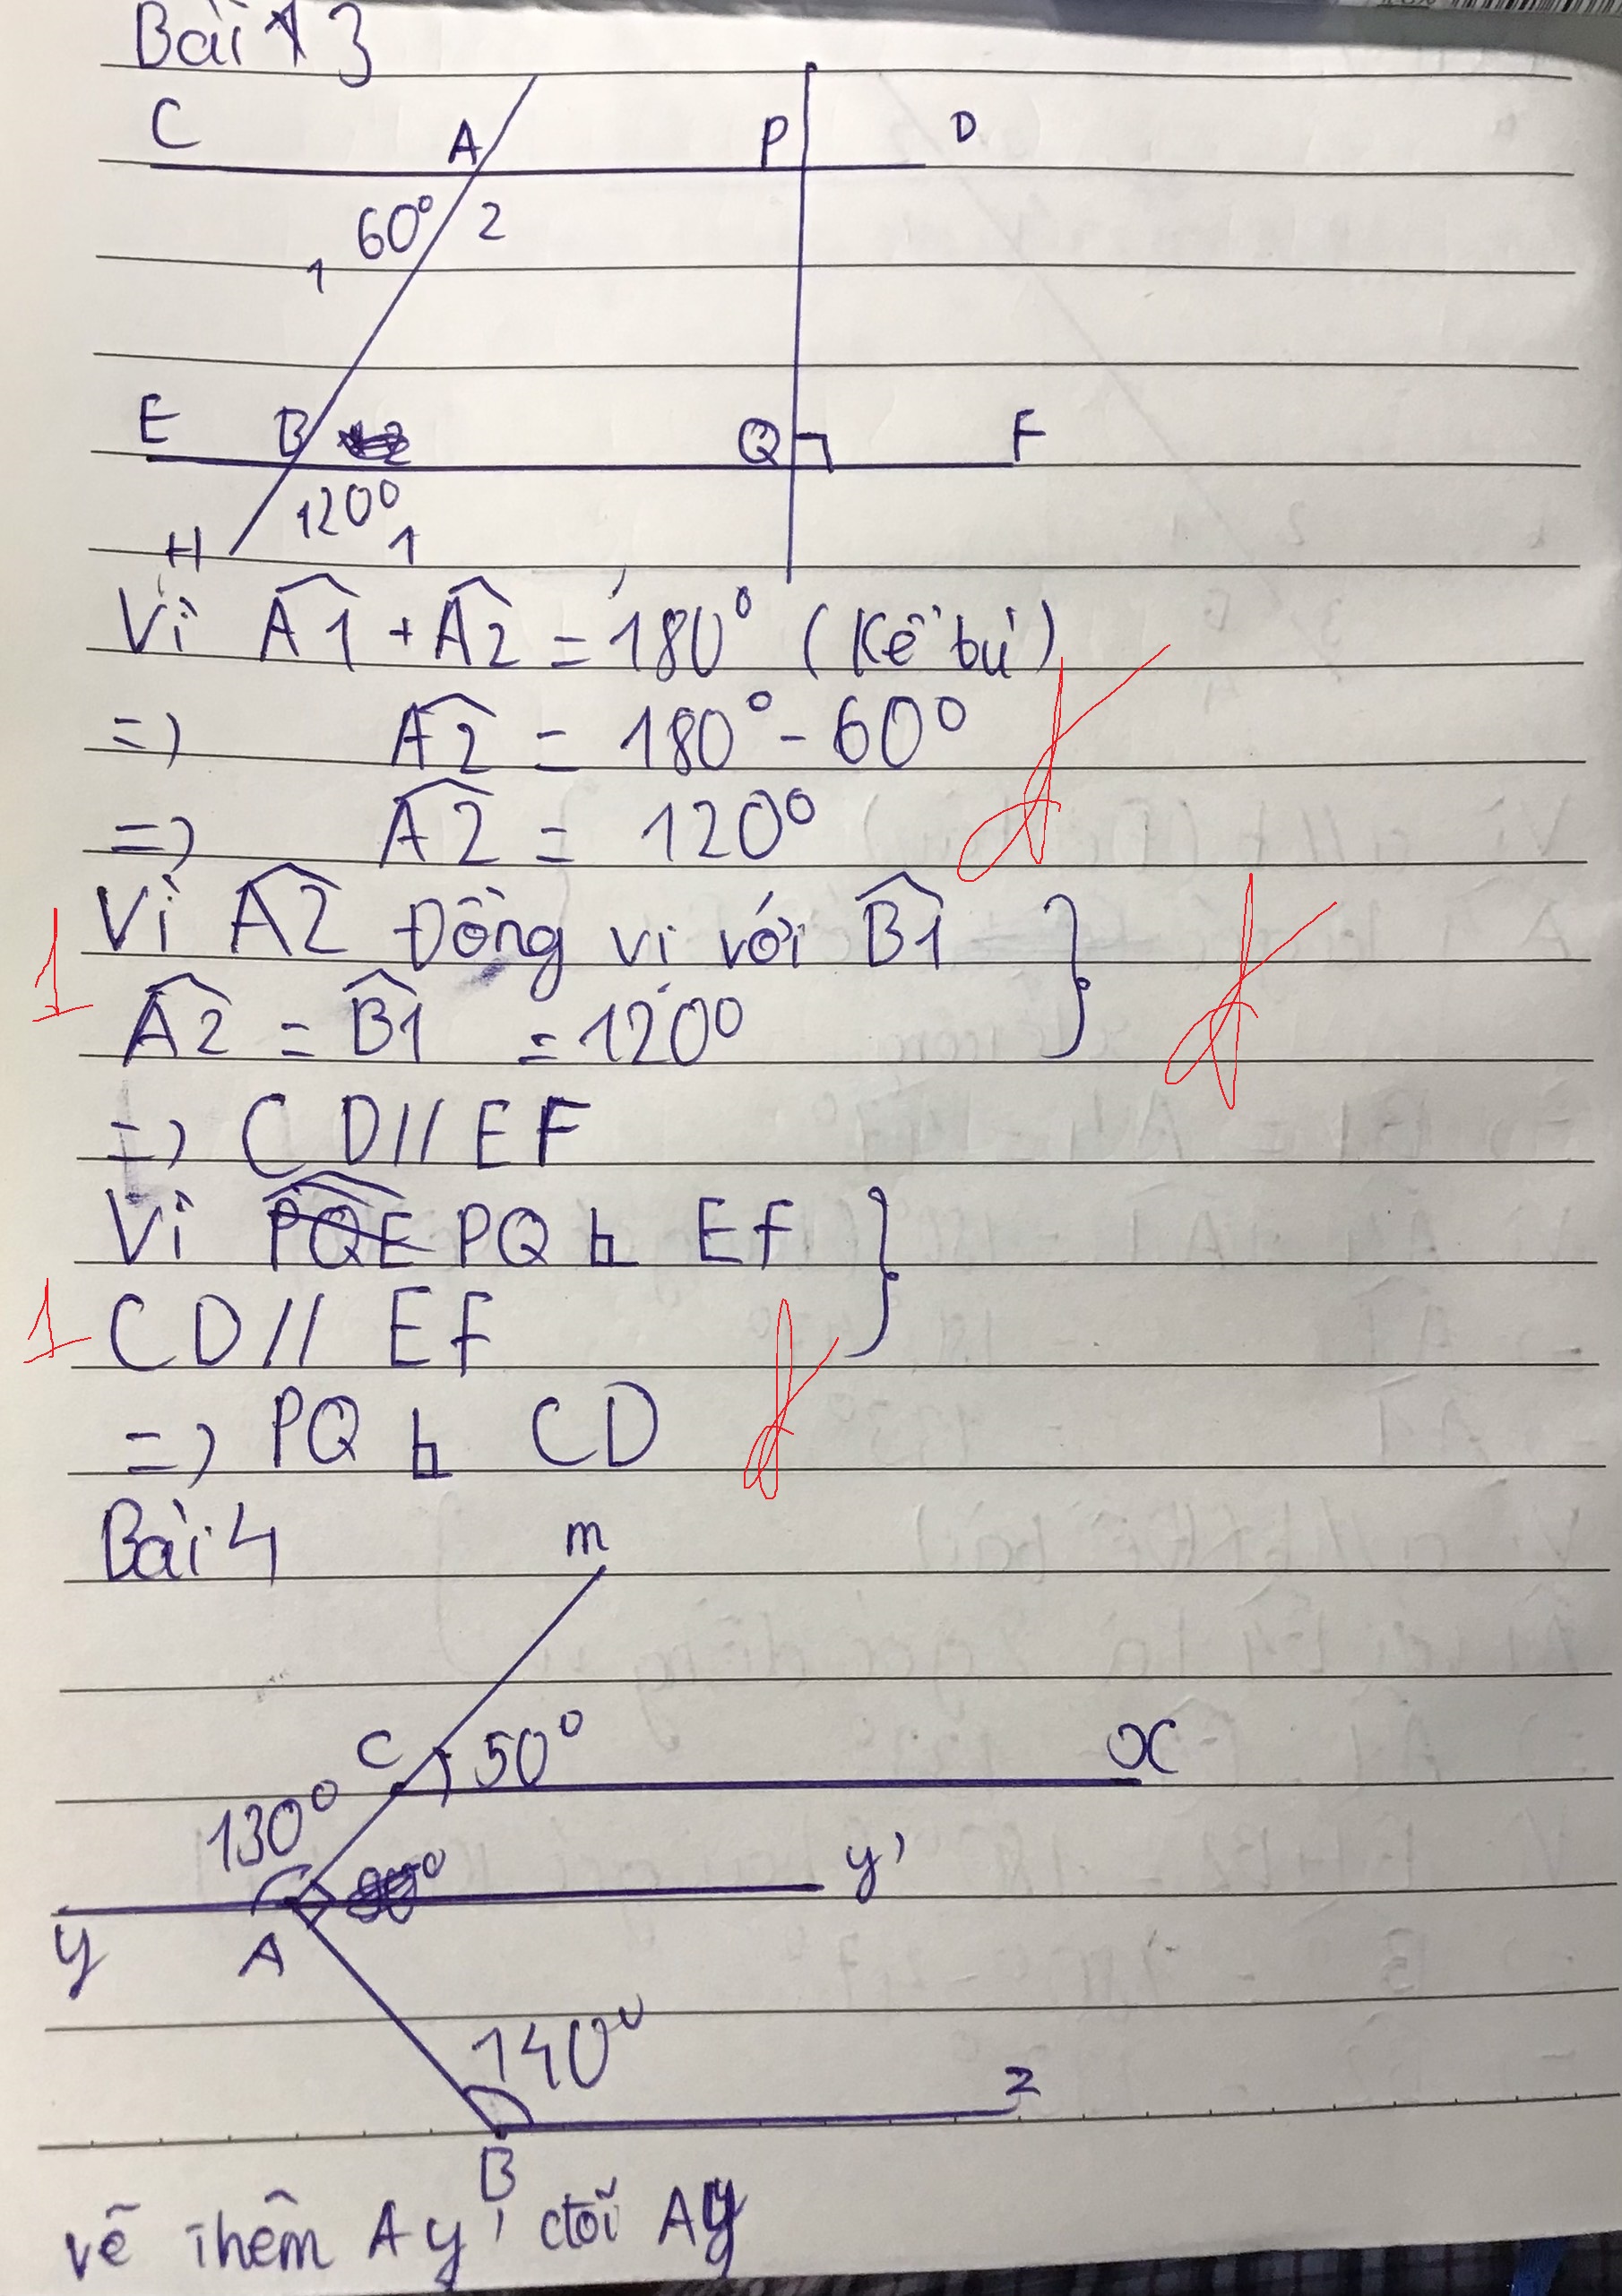 Bài 3
C A P D
60° 2
1
E B Q F
120°
H 1
Vì A1 + A2 = 180° (Kề bù)
=> A2 = 180° - 60°
=> A2 = 120°
Vì A2 Đồng vị với B1 }
1
A2 = B1 = 120°
=> CD // EF
Vì PQ ⊥ EF }
1 CD // EF
=> PQ ⊥ CD
Bài 4
m
C 50° x
130°
y'
y A
140°
z
B
vẽ thêm Ay' đối Ay